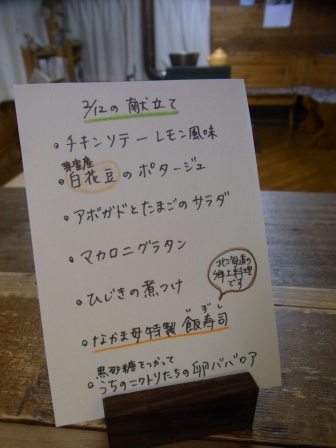 2/12の献立て
・チキンソテーレモン風味
芽室産
・白花豆のポタージュ
・アボガドとたまごのサラダ
・マカロニグラタン
・ひじきの煮つけ
北海道の
郷土料理
です
いずし
・なかま母特製 飯寿司
黒砂糖をつかって
・うちのニワトリたちの卵ババロア